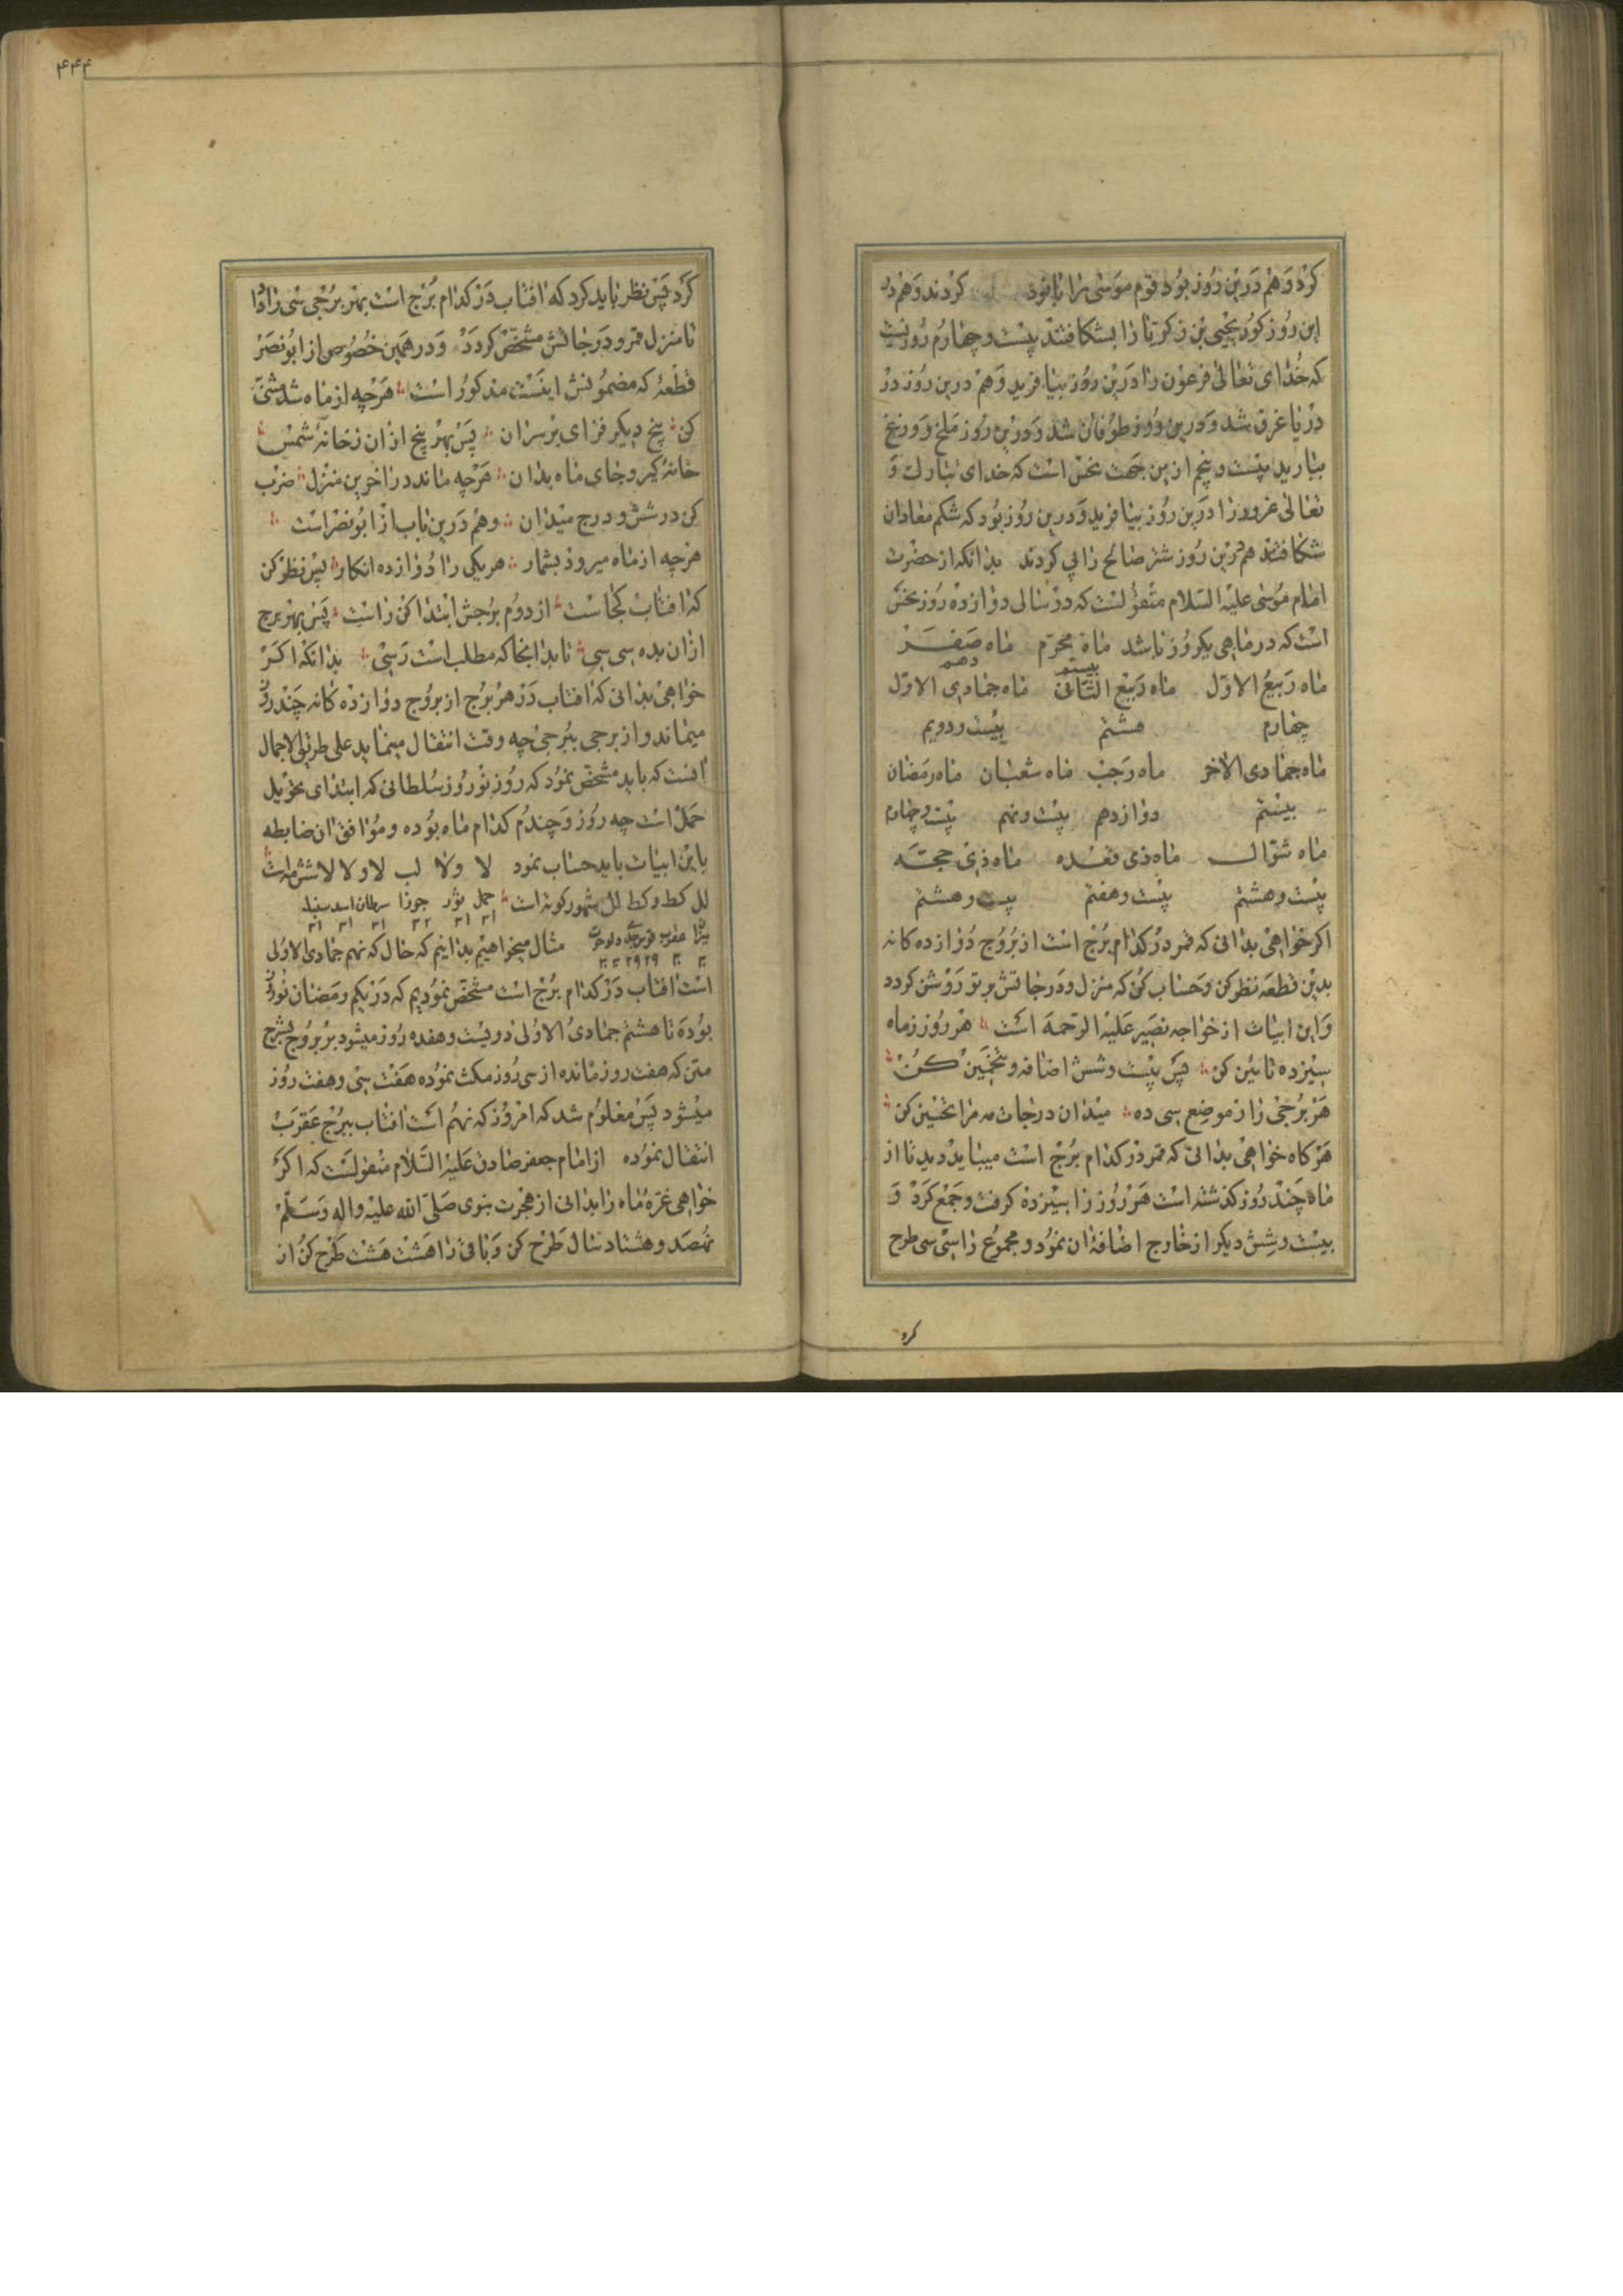 کرد و هم درین روز بود قوم موسی را نابود کردند و هم در
این روز کور یحیی بن زکریا را بشکافتند بیست و چهارم روزیست
که خدای تعالی فرعون را درین روز بیافرید و هم درین روز در
دریا غرق شد و درین روز طوفان شد و درین روز ملخ و وزغ
ببارید بیست و پنجم ازین جهت نحس است که خدای تبارک و
تعالی درین روز بیافرید و درین روز بود که شکم
شکافتند هم درین روز شتر صالح را پی کردند بدانکه از حضرت
امام موسی علیه السلام منقولست که در سالی دوازده روز نحس
است که در ماهی یکروز باشد ماه محرم ماه صفر
بیستم دهم
ماه ربیع الاول ماه ربیع الثانی ماه جمادی الاول
چهارم هشتم بیست و دویم
ماه جمادی الاخر ماه رجب ماه شعبان ماه رمضان
بیستم دوازدهم بیست و نهم بیست و چهارم
ماه شوال ماه ذی قعده ماه ذی حجه
بیست و هشتم بیست و هفتم بیست و هشتم
اکر خواهی بدانی که قمر در کدام برج است از بروج دوازده کانه
بدین قطعه نظر کن و حساب کن که منزل و درجاتش بر تو روشن کردد
و این ابیات از خواجه نصیر علیه الرحمه است هر روز ز ماه
سیزده تائین کن پس بیست و شش اضافه و تخمین کن
هر برجی را ز موضع سی ده میدان درجات مه مرا تحسین کن
هر کاه خواهی بدانی که قمر در کدام برج است میباید دید تا از
ماه چند روز کذشته است هر روز را سیزده کرفت و جمع کرد و
بیست و شش دیکر از خارج اضافهٔ ان نمود و مجموع را سی سی طرح
کرد
۴۴۴
کرد پس نظر باید کرد که افتاب در کدام برج است بهر برجی سی را داد
تا منزل قمر و درجاتش مشخص کردد و در همین خصوص از ابو نصر
قطعهٔ که مضمونش اینست مذکور است هرچه از ماه شد مثنی
کن پنج دیکر فزای بر سر ان پس بهر پنج ازان ز خانهٔ شمس
خانهٔ کیر و جای ماه بدان هرچه ماند در اخرین منزل ضرب
کن در شش و درج میدان و هم درین باب از ابو نصر است
هرچه از ماه میرود بشمار هر یکی را دوازده انکار پس نظر کن
که افتاب کجاست از دوم برجش ابتدا کن راست پس بهر برج
ازان بده سی سی تا بدانجا که مطلب است رسی بدانکه اکر
خواهی بدانی که افتاب در هر برج از بروج دوازده کانه چند روز
میماند و از برجی ببرجی چه وقت انتقال مینماید علی طریق الاجمال
انست که باید مشخص نمود که روز نوروز سلطانی که ابتدای تحویل
حمل است چه روز و چندم کدام ماه بوده و موافق ان ضابطه
باین ابیات باید حساب نمود لا و لا لب لا و لا لا شش مه است
لل کط و کط لل شهور کوته است حمل ثور جوزا سرطان اسد سنبله
۳۱ ۳۱ ۳۲ ۳۱ ۳۱ ۳۱
میزان عقرب قوس جدی دلو حوت مثال میخواهیم بدانیم که حال که نهم جمادی الاولی
۳۰ ۳۰ ۲۹ ۲۹ ۳۰ ۳۰
است افتاب در کدام برج است مشخص نمودیم که در یکم رمضان نوروز
بوده تا هشتم جمادی الاولی دویست و هفده روز میشود بر بروج بشرح
متن که هفت روز مانده از سی روز مکث نموده هفت سی و هفت روز
میشود پس معلوم شد که امروز که نهم است افتاب ببرج عقرب
انتقال نموده از امام جعفر صادق علیه السلام منقولست که اکر
خواهی غرهٔ ماه را بدانی از هجرت نبوی صلی الله علیه واله وسلم
نهصد و هشتاد سال طرح کن و باقی را هشت هشت طرح کن از